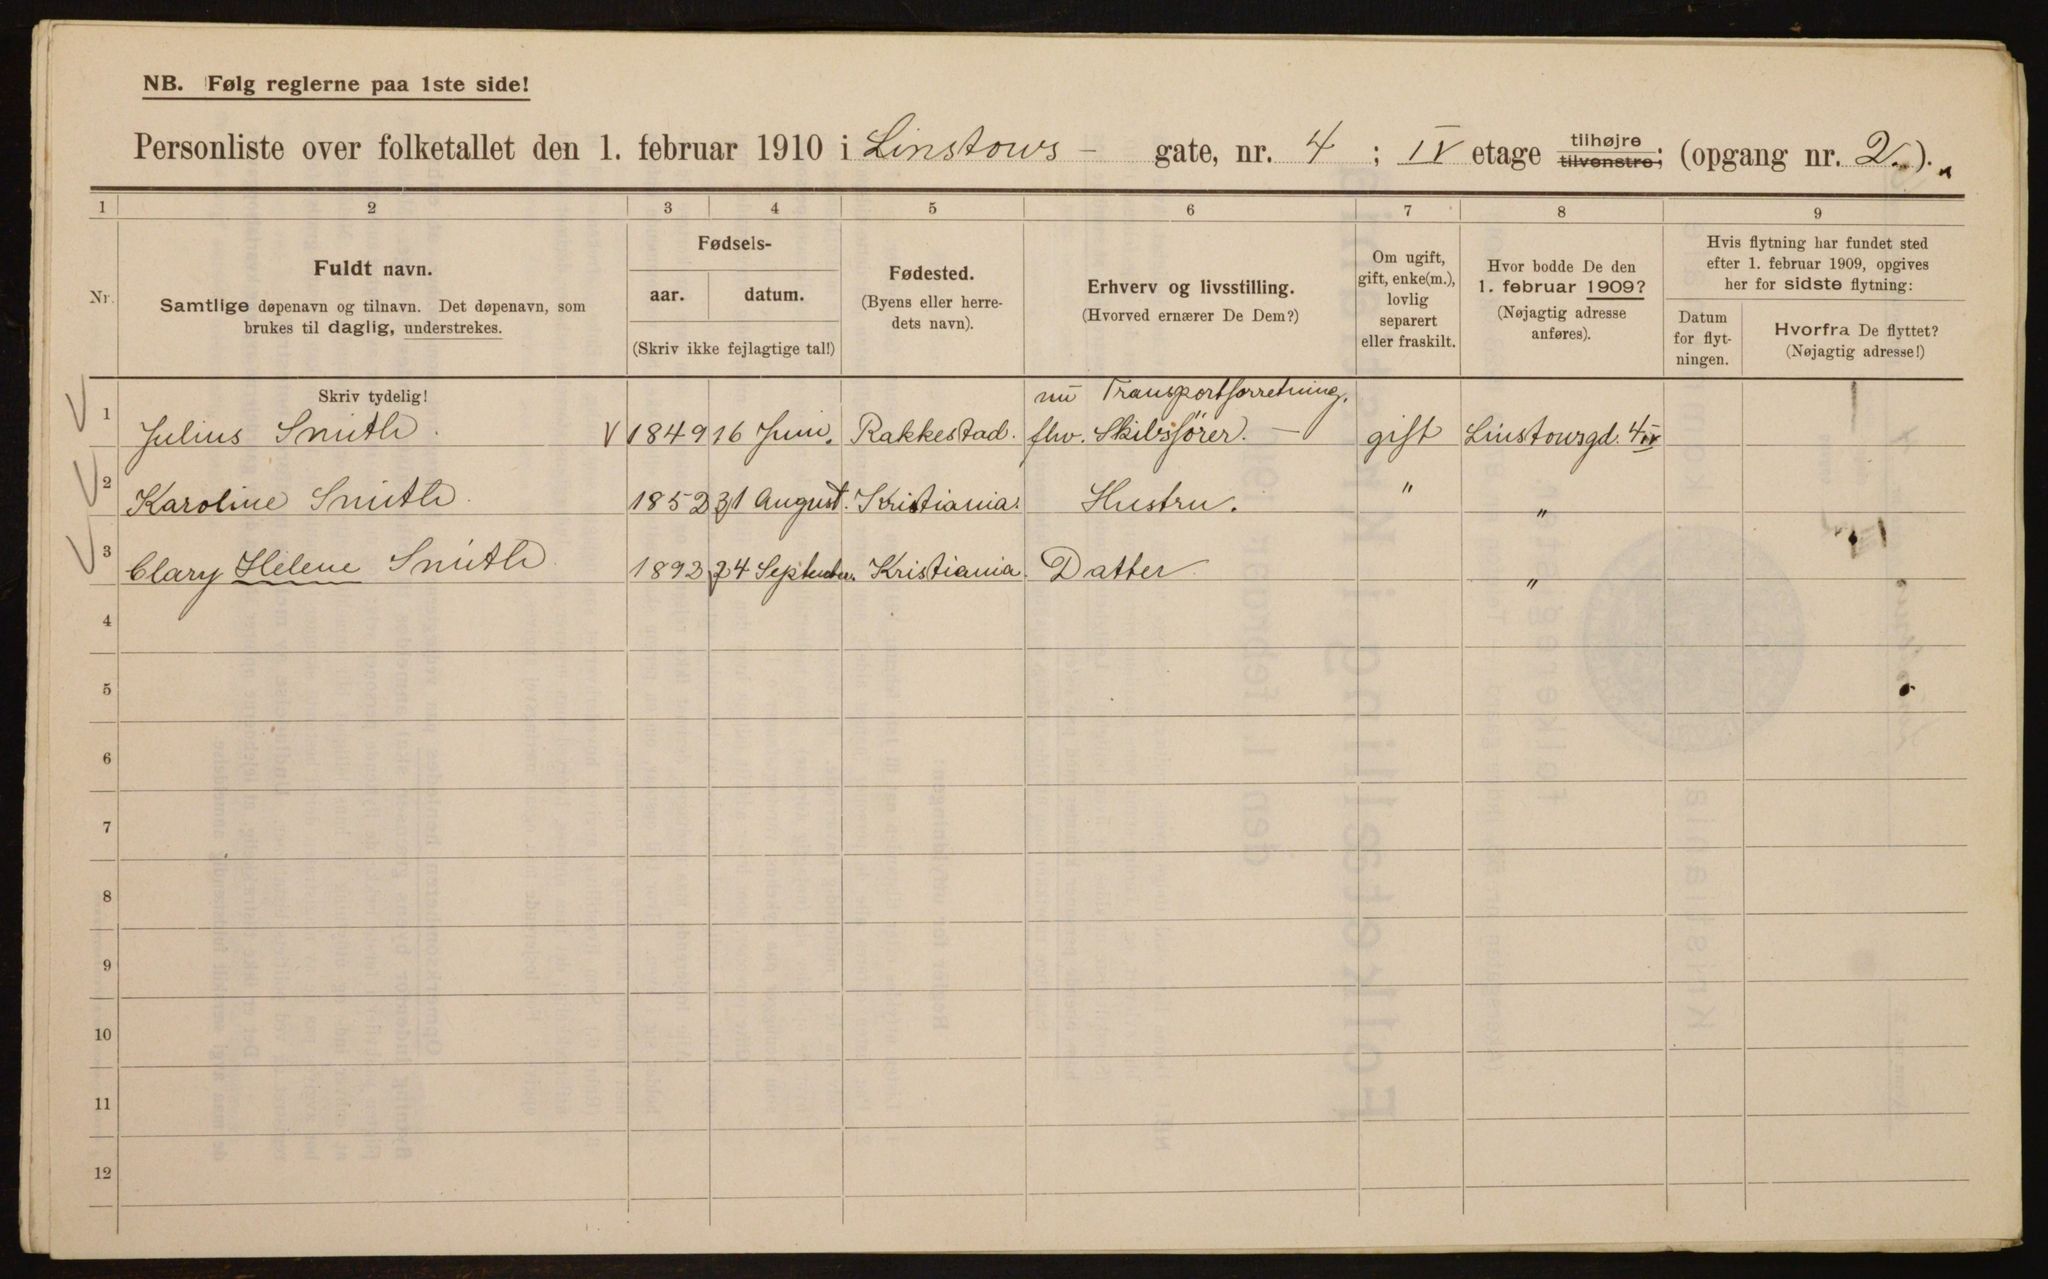 NB. Følg reglerne paa 1ste side!
Personliste over folketallet den 1. februar 1910 i Linstows - gate, nr. 4; IV etage tilhøjre tilvenstre; (opgang nr. 2.).
1 2 3 4 5 6 7 8 9
Nr.
Fuldt navn.
Samtlige døpenavn og tilnavn. Det døpenavn, som
brukes til daglig, understrekes.
Fødsels-
aar. datum.
(Skriv ikke fejlagtige tal!)
Fødested.
(Byens eller herre-
dets navn).
Erhverv og livsstilling.
(Hvorved ernærer De Dem?)
Om ugift,
gift, enke(m.),
lovlig
separert
eller fraskilt.
Hvor bodde De den
1. februar 1909?
(Nøjagtig adresse
anføres).
Hvis flytning har fundet sted
efter 1. februar 1909, opgives
her for sidste flytning:
Datum
for flyt-
ningen.
Hvorfra De flyttet?
(Nøjagtig adresse!)
Skriv tydelig!
nu Transportforretning.
1 Julius Smith. V 1849 16 Juni. Rakkestad. fhv. Skibsfører. — gift Linstowsgd. 4 IV
2 Karoline Smith. 1852 31 August. Kristiania. Hustru. " "
3 Clary Helene Smith. 1892 24 September. Kristiania. Datter. "
4
5
6
7
8
9
10
11
12